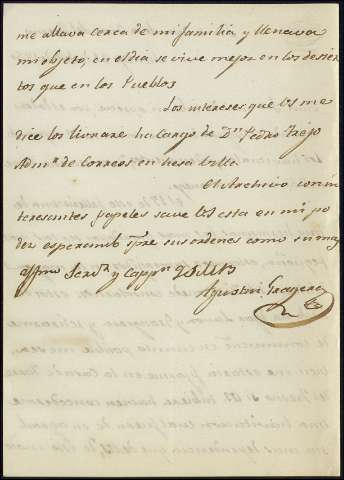 me allava cerca de mi familia y llenava
mi objeto, en el dia se vive mejor en los desier
tos que en los Pueblos
Los intereses que Vs me
dice los livrare ha cargo de Dn Pedro Trejo
Admr de Correos en hesa billa
El Archivo con in
teresantes papeles save Vs esta en mi po
der esperando pre sus ordenes como su mas
affmo Servr y Cappn
Agustin Fragero